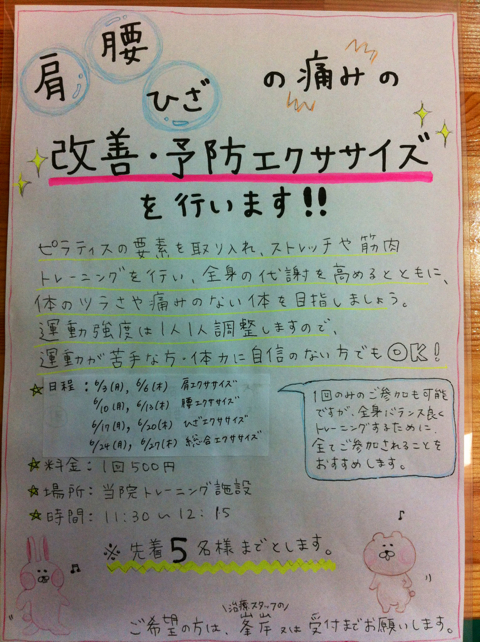 肩 腰 ひざ の痛みの
改善・予防エクササイズ
を行います!!
ピラティスの要素を取り入れ、ストレッチや筋肉
トレーニングを行い、全身の代謝を高めるとともに、
体のツラさや痛みのない体を目指しましょう。
運動強度は1人1人調整しますので、
運動が苦手な方・体力に自信のない方でもOK!
☆日程:6/3(月), 6/6(木) 肩エクササイズ
6/10(月), 6/13(木) 腰エクササイズ
6/17(月), 6/20(木) ひざエクササイズ
6/24(月), 6/27(木) 総合エクササイズ
1回のみのご参加も可能
ですが、全身バランス良く
トレーニングするために、
全てご参加されることを
おすすめします。
☆料金:1回500円
☆場所:当院トレーニング施設
☆時間:11:30〜12:15
※先着5名様までとします。
\治療スタッフの/
ご希望の方は、峯岸又は受付までお願いします。